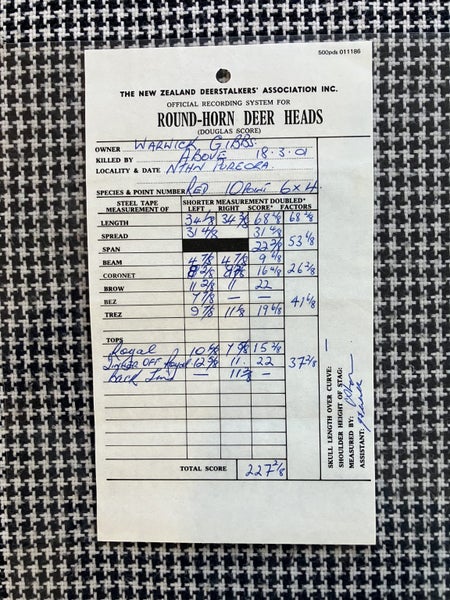 500pds 011186
THE NEW ZEALAND DEERSTALKERS' ASSOCIATION INC.
OFFICIAL RECORDING SYSTEM FOR
ROUND-HORN DEER HEADS
(DOUGLAS SCORE)
OWNER WARWICK GIBBS.
KILLED BY ABOVE 18.3.01
LOCALITY & DATE NTHN PUREORA.
SPECIES & POINT NUMBER RED 10 POINT 6x4.
STEEL TAPE MEASUREMENT OF SHORTER MEASUREMENT DOUBLED* LEFT RIGHT SCORE* FACTORS
LENGTH 68 2/8
SPREAD 31 4/8 31 4/8
SPAN 53 6/8
BEAM 4 7/8 4 7/8 9 6/8
CORONET 16 4/8 26 2/8
BROW 11 2/8 11 22
BEZ 7 7/8 — —
TREZ 9 7/8 11 19 6/8 41 6/8
TOPS
Royal 15 2/8
Inner OFF Royal 11. 22 37 2/8
Back —
TOTAL SCORE 227 2/8
SKULL LENGTH OVER CURVE: —
SHOULDER HEIGHT OF STAG:
MEASURED BY:
ASSISTANT: